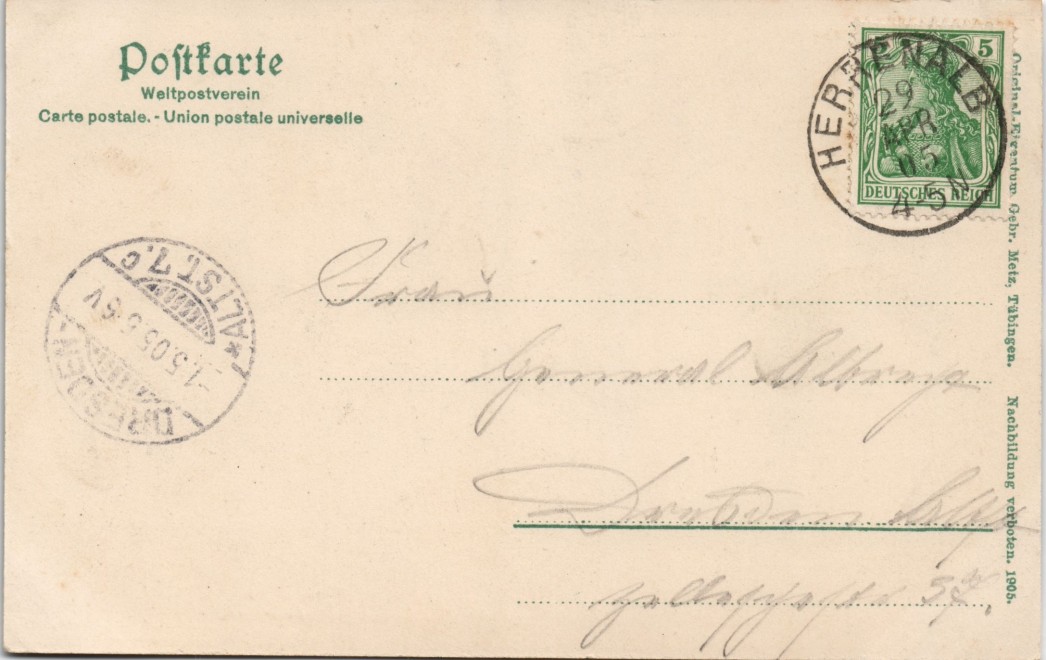 Postkarte
Weltpostverein
Carte postale. - Union postale universelle
5
DEUTSCHES REICH
HERRENALB
29
APR
05
4-5 N
DRESDEN-
* ALTST. 7. c
-1.5.05.5-6V
Frau
General
Dresden
37
Original-Eigentum Gebr. Metz, Tübingen. Nachbildung verboten. 1905.